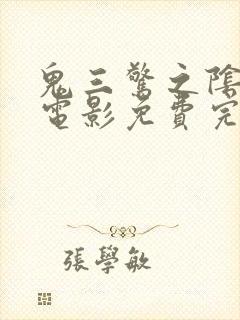 鬼三驚之陰
電影免費完
張學敏